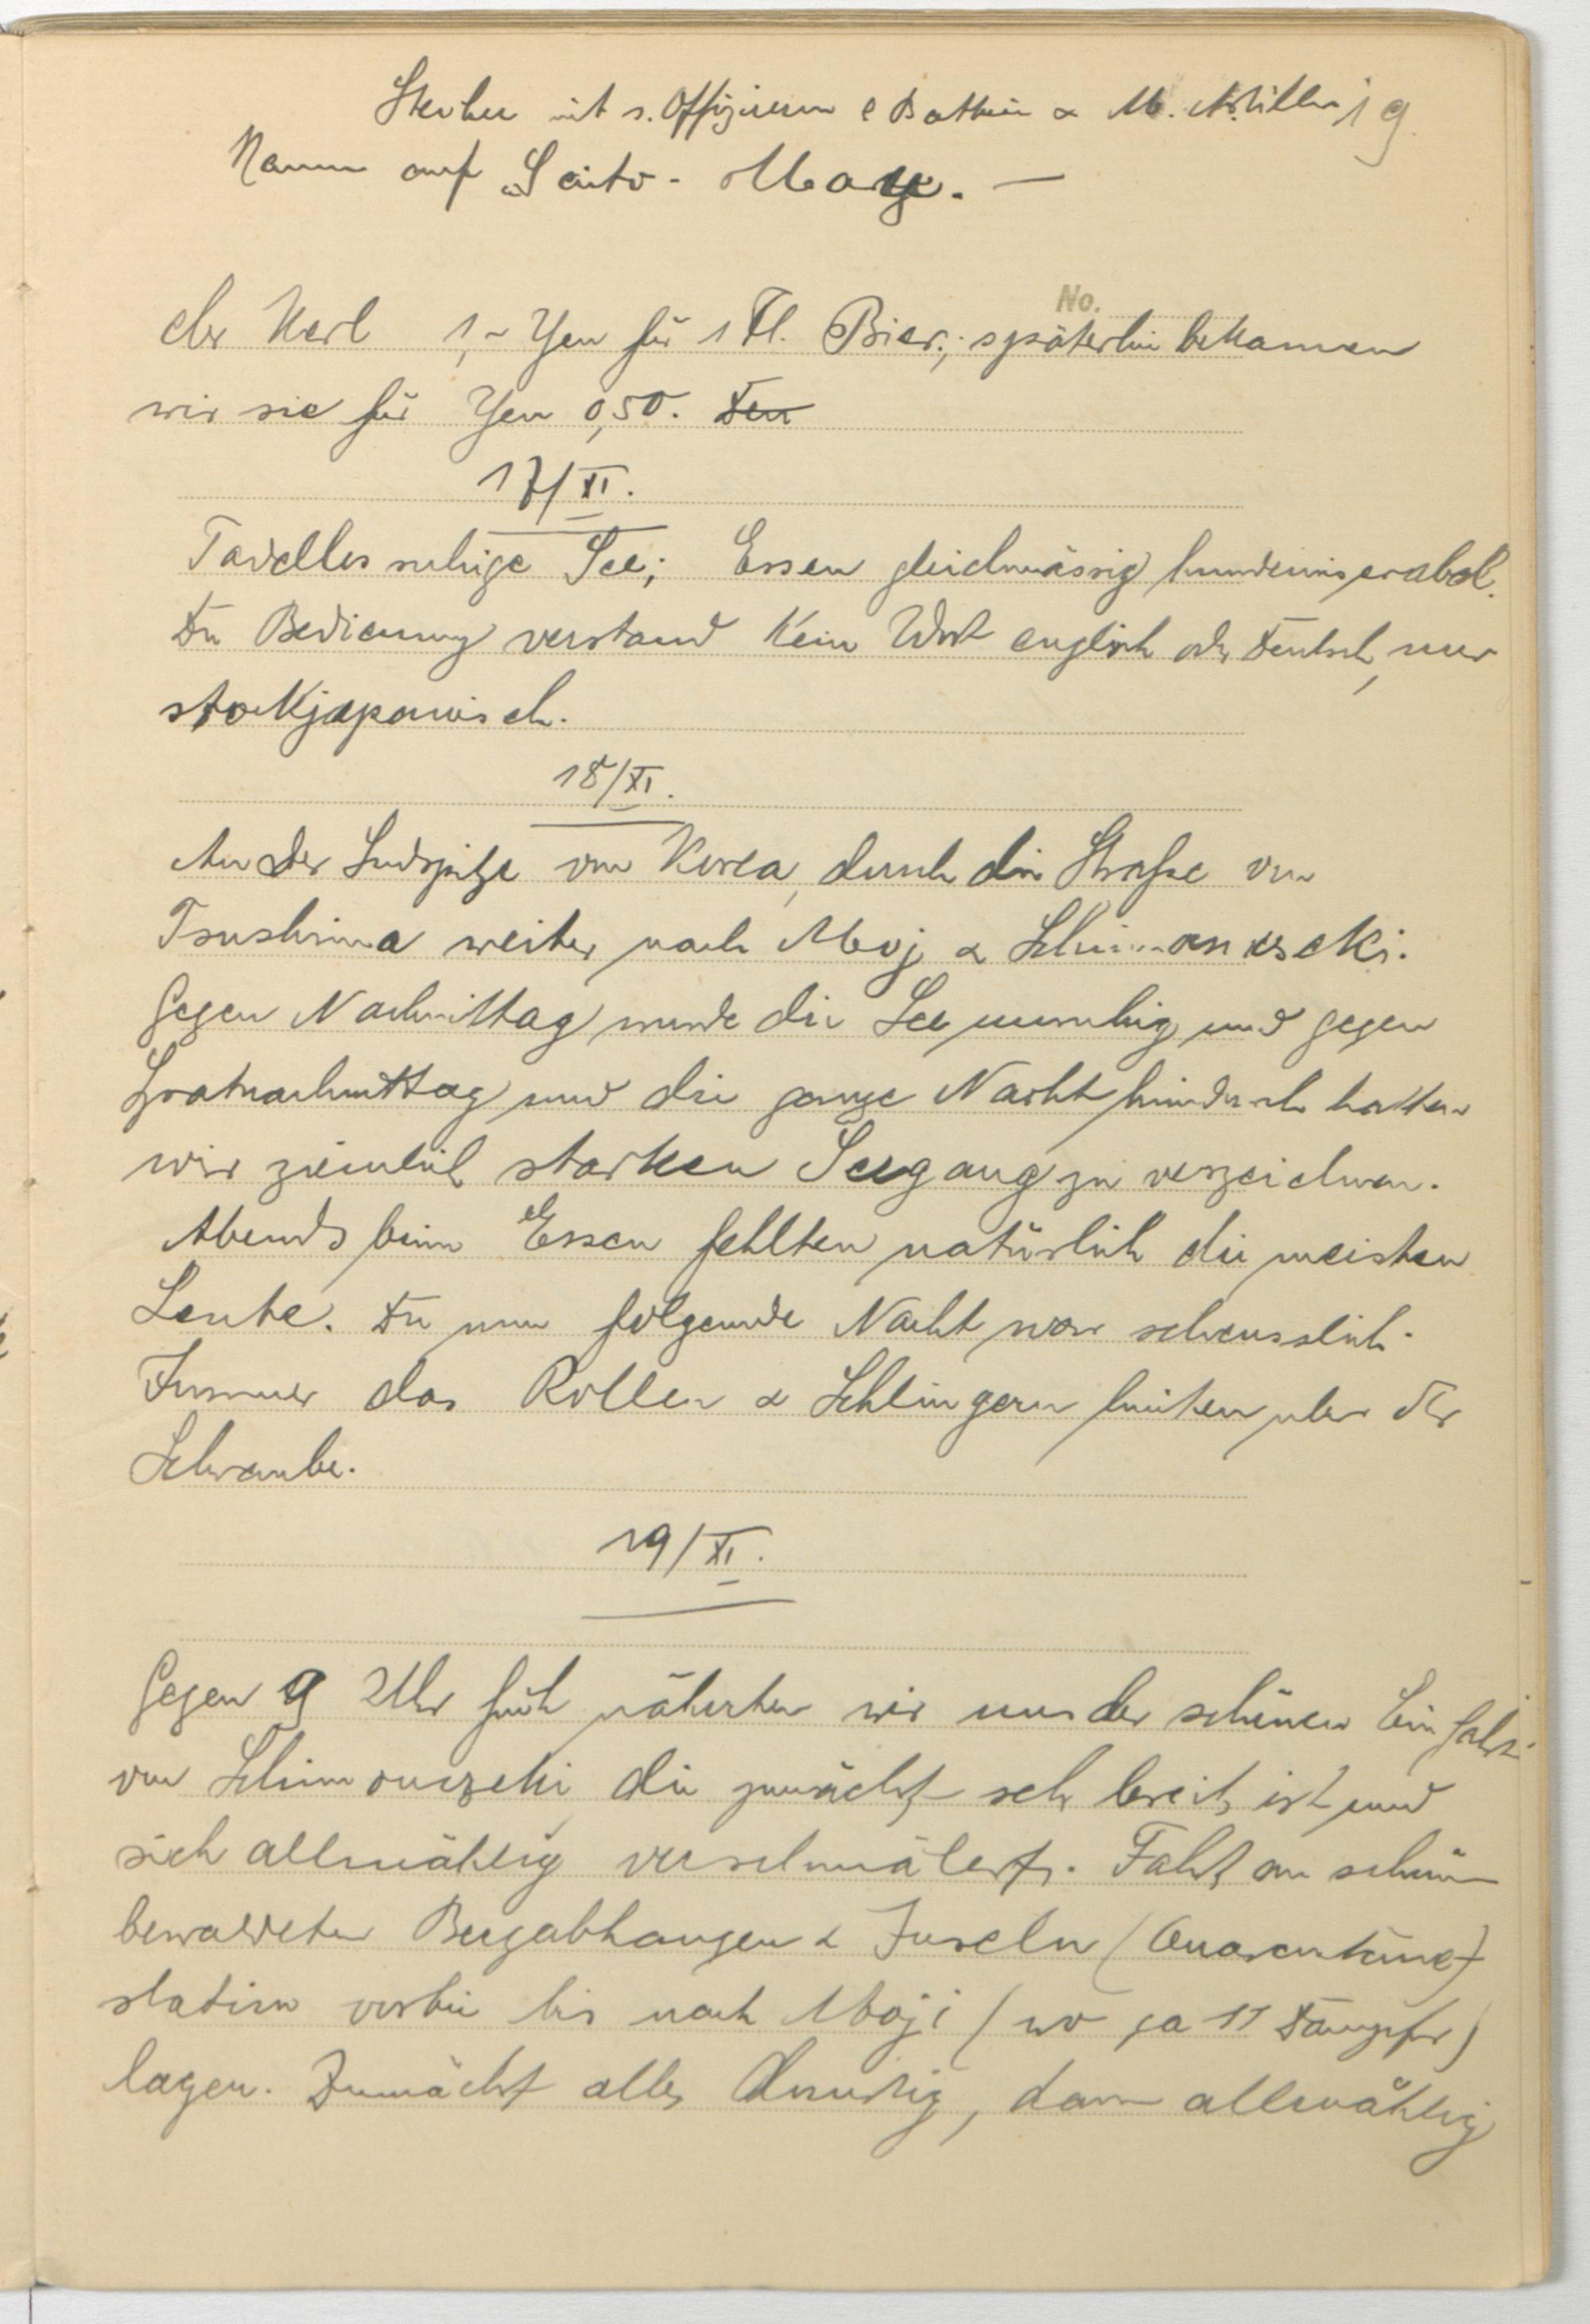 Stecher mit s. Offizieren & Batterie & M. Artillr 19
Namen auf Saito-Mary. —
No.
der Kerl 1,- Yen für 1 Fl. Bier; späterhin bekamen
wir sie für Yen 0,50. Den
17/XI.
Tadellos ruhige See; Essen gleichmässig hundemiserabel.
Die Bedienung verstand kein Wort englisch oder Deutsch, nur
stockjapanisch.
18/XI.
An der Südspitze von Korea, durch die Straße von
Tsushima weiter nach Moj & Schimonoseki.
Gegen Nachmittag wurde die See unruhig und gegen
Spätnachmittag und die ganze Nacht hindurch hatten
wir ziemlich starken Seegang zu verzeichnen.
Abends beim Essen fehlten natürlich die meisten
Leute. Die nun folgende Nacht war scheusslich.
Immer das Rollen & Schlingern hinten über der
Schraube.
19/XI.
Gegen 9 Uhr früh näherten wir uns der schönen Einfahrt
von Schimonozeki die zunächst sehr breit ist und
sich allmählig verschmälert. Fahrt an schön
bewaldeten Bergabhangen & Inseln (Quarantäne)
station vorbei bis nach Moji (wo ca 11 Dampfer)
lagen. Zunächst alles dunstig, dann allmählig